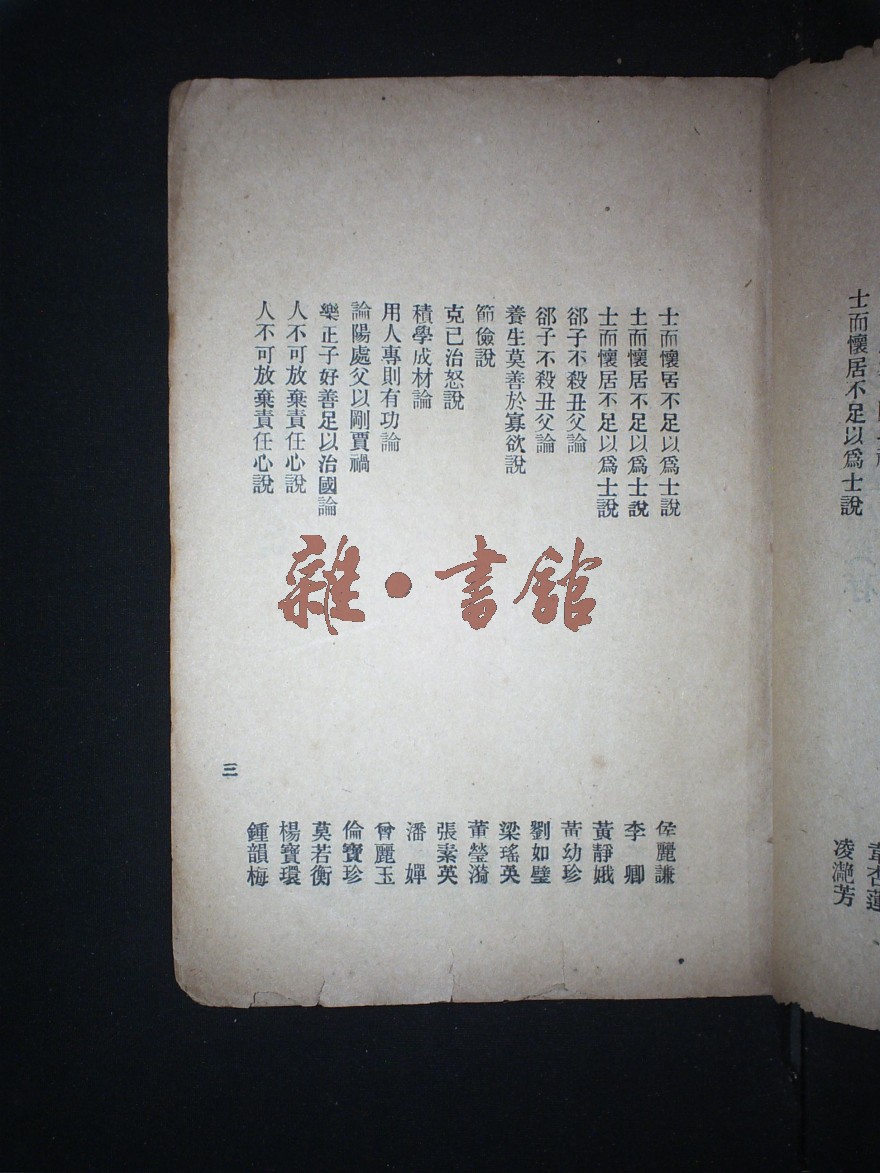 士而懷居不足以爲士說
凌灔芳
士而懷居不足以爲士說 侯麗謙
士而懷居不足以爲士說 李卿
士而懷居不足以爲士說 黃靜娥
郤子不殺丑父論 黃幼珍
郤子不殺丑父論 劉如璧
養生莫善於寡欲說 梁瑤英
節儉說 董瑩漪
克己治怒說 張素英
積學成材論 潘嬋
用人專則有功論 曾麗玉
論陽處父以剛賈禍 倫寶珍
樂正子好善足以治國論 莫若衡
人不可放棄責任心說 楊寶環
人不可放棄責任心說 鍾韻梅
三
雜·書館